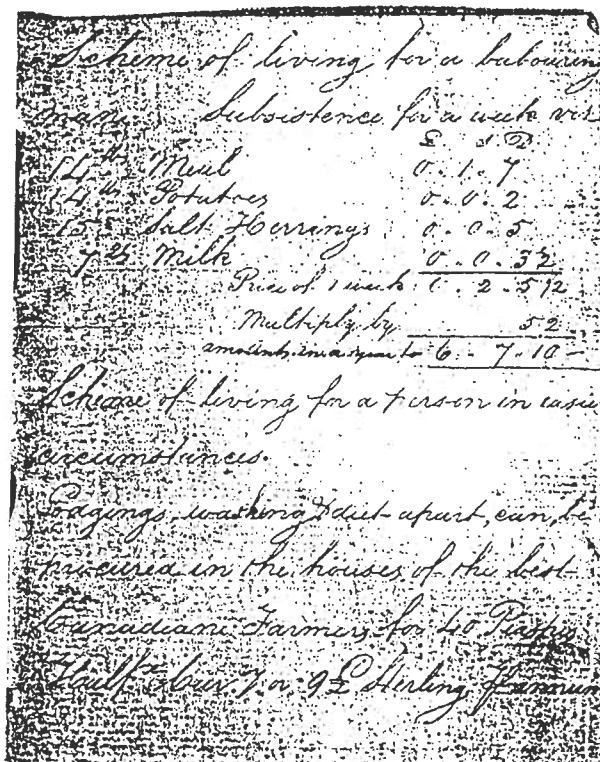 Scheme of living for a labouring
man Subsistence for a week viz
£ S D
14 lb Meal 0 . 1 . 7
14 lb Potatoes 0 . 0 . 2
15 Salt Herrings 0 . 0 . 5
7 Milk 0 . 0 . 3½
Price of 1 week 0 . 2 . 5½
Multiply by 52
amounts in a year to 6 . 7 . 10 –
Scheme of living for a person in easie
circumstances.
Lodgings, washing & diet apart, can, be
procured in the houses of the best
Canadiane Farmers for 40
Half 7 or 9£ Sterling